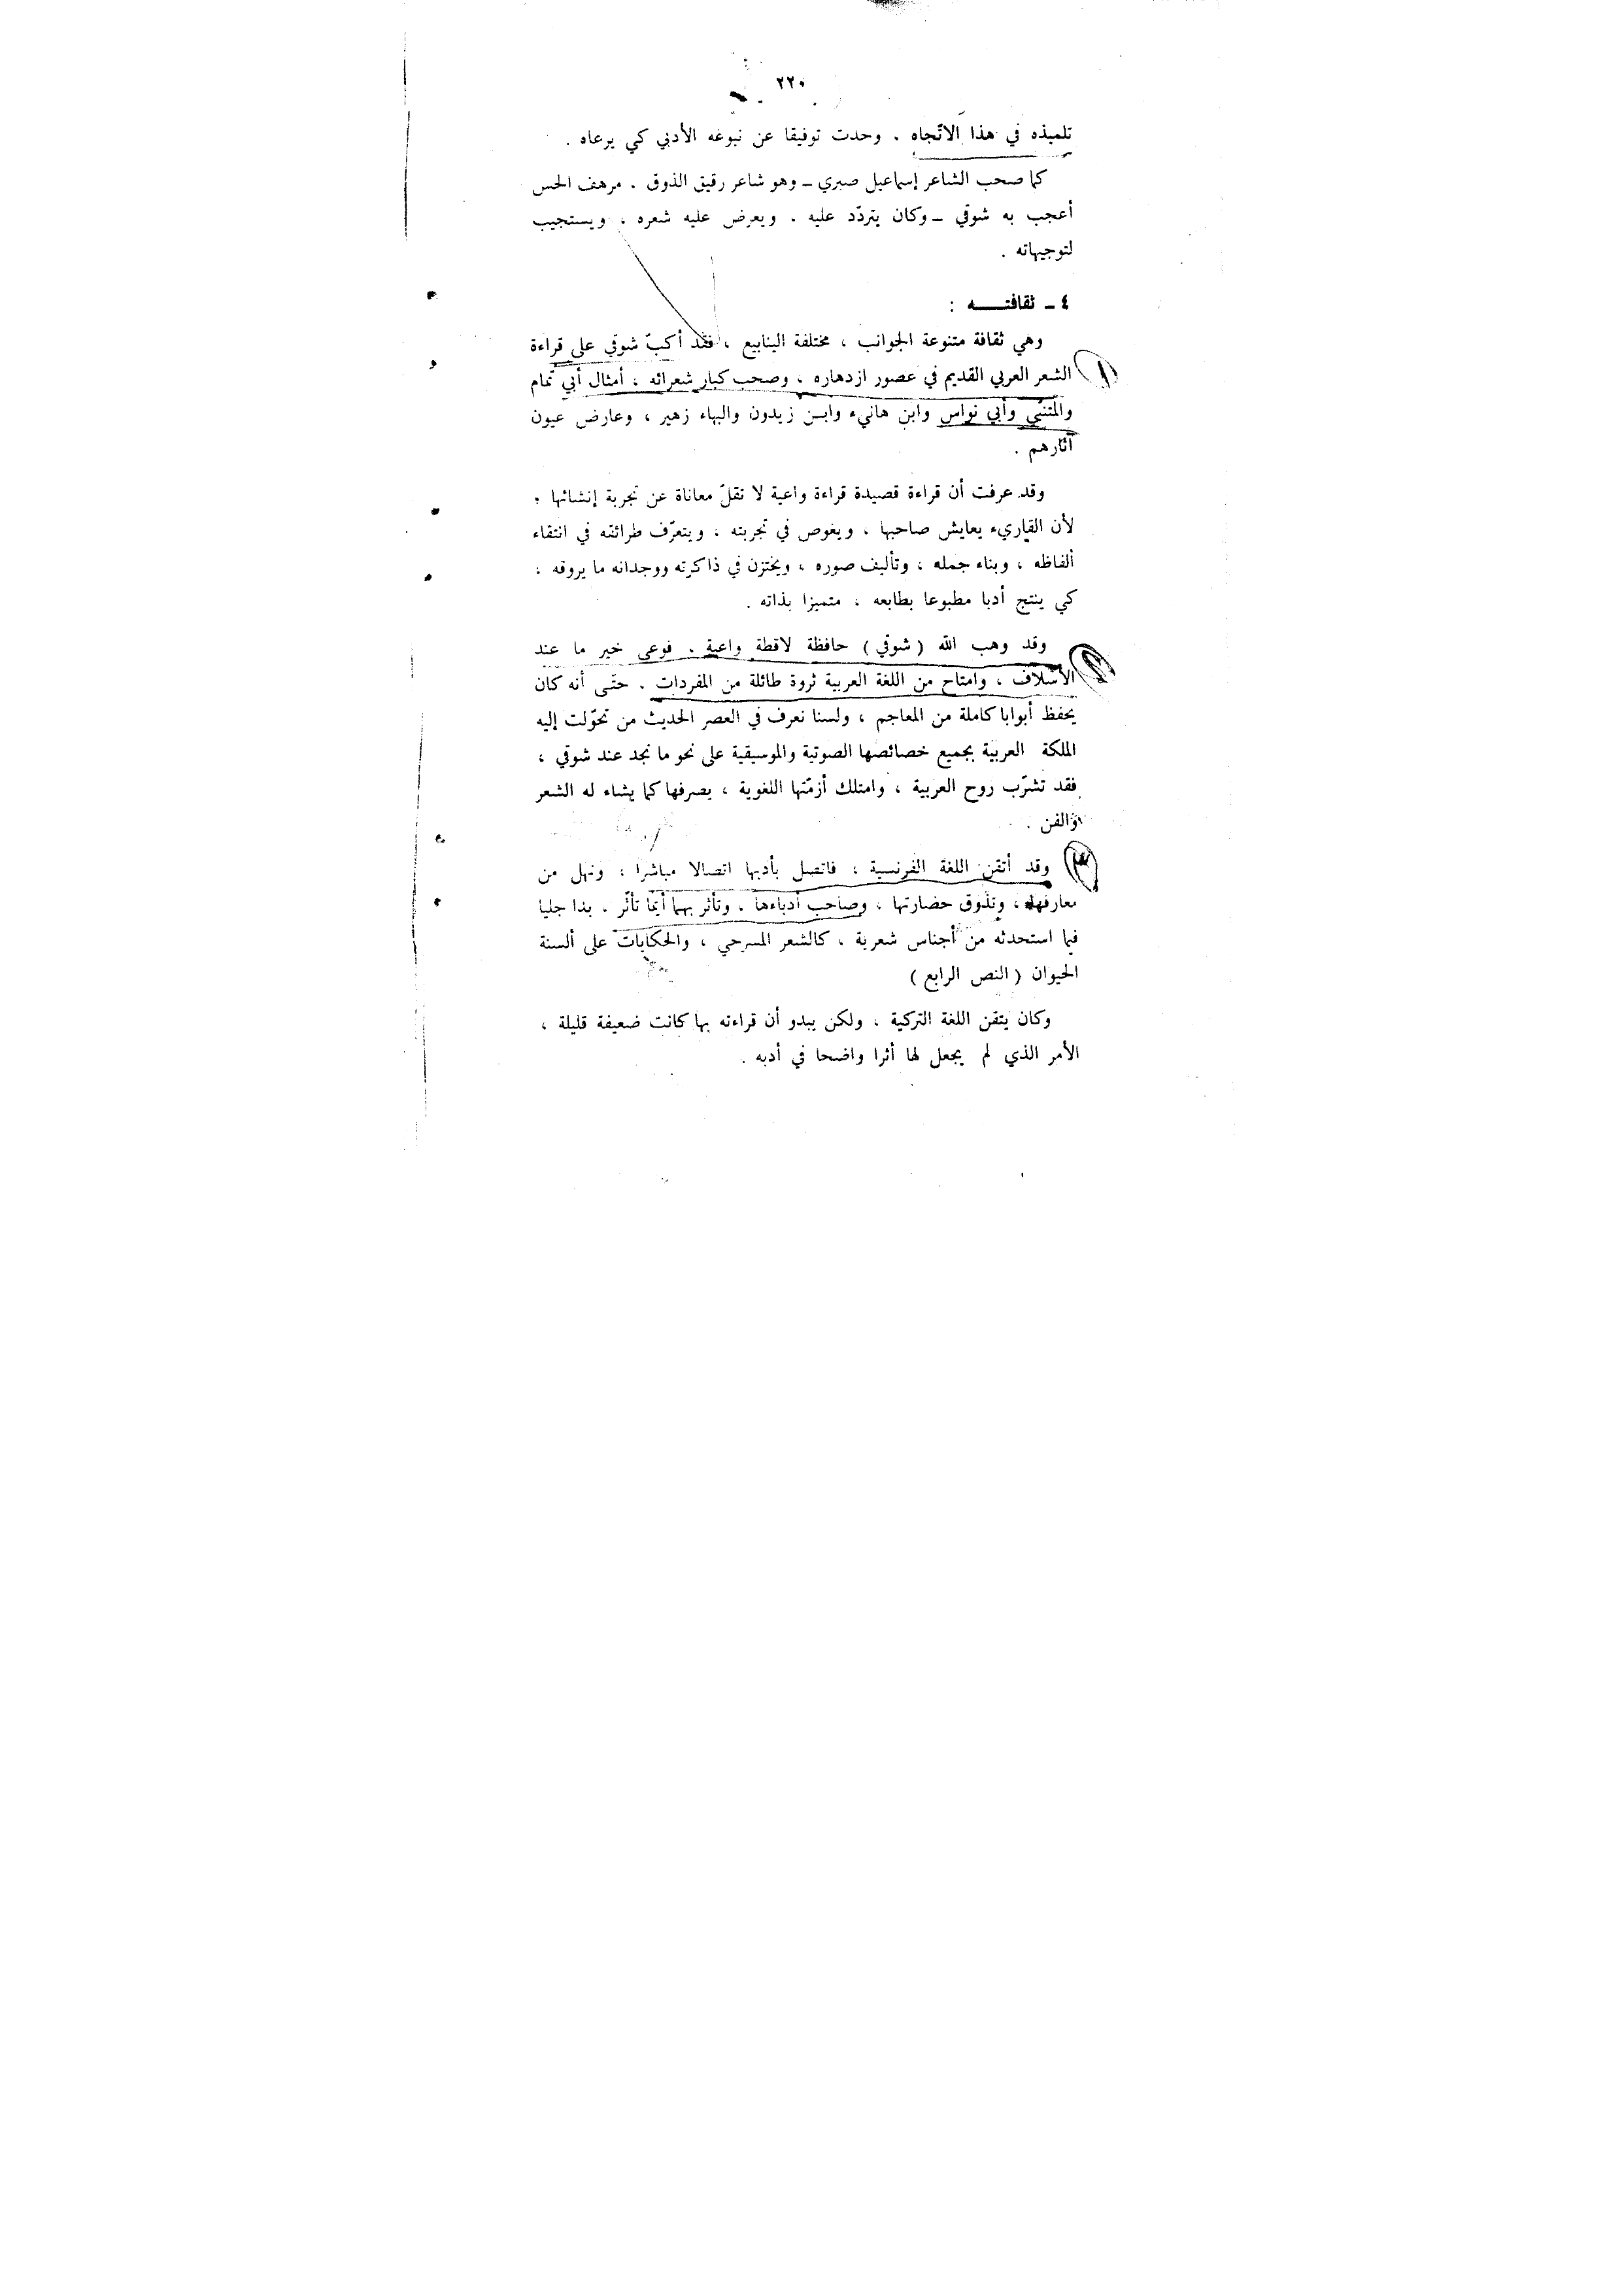 ٢٢٠
تلميذه في هذا الاتّجاه . وحدت توفيقا عن نبوغه الأدبي كي يرعاه .
كما صحب الشاعر إسماعيل صبري ــ وهو شاعر رقيق الذوق . مرهف الحس
أعجب به شوقي ــ وكان يتردّد عليه . ويعرض عليه شعره ، ويستجيب
لتوجيهاته .
٤ ــ ثقافتـــــه :
وهي ثقافة متنوعة الجوانب ، مختلفة الينابيع ، فقد أكبّ شوقي على قراءة
الشعر العربي القديم في عصور ازدهاره ، وصحب كبار شعرائه ، أمثال أبي تمام
والمتنبّي وأبي نواس وابن هانيء وابن زيدون والبهاء زهير ، وعارض عيون
آثارهم .
وقد عرفت أن قراءة قصيدة قراءة واعية لا تقلّ معاناة عن تجربة إنشائها ؛
لأن القاريء يعايش صاحبها ، ويغوص في تجربته ، ويتعرّف طرائقه في انتقاء
ألفاظه ، وبناء جمله ، وتأليف صوره ، ويختزن في ذاكرته ووجدانه ما يروقه ؛
كي ينتج أدبا مطبوعا بطابعه ، متميزا بذاته .
وقد وهب الله ( شوقي ) حافظة لاقطة واعية . فوعى خير ما عند
الأسلاف ، وامتاح من اللغة العربية ثروة طائلة من المفردات . حتّى أنه كان
يحفظ أبوابا كاملة من المعاجم ، ولسنا نعرف في العصر الحديث من تحوّلت إليه
الملكة العربية بجميع خصائصها الصوتية والموسيقية على نحو ما نجد عند شوقي ،
فقد تشرّب روح العربية ، وامتلك أزمّتها اللغوية ، يصرفها كما يشاء له الشعر
والفن .
وقد أتقن اللغة الفرنسية ؛ فاتصل بأدبها اتصالا مباشرا ؛ ونهل من
معارفها ، وتذوق حضارتها ، وصاحب أدباءها . وتأثر بهما أيّما تأثّر . بدا جليا
فيما استحدثه من أجناس شعرية ، كالشعر المسرحي ، والحكايات على ألسنة
الحيوان ( النص الرابع )
وكان يتقن اللغة التركية ، ولكن يبدو أن قراءته بها كانت ضعيفة قليلة ،
الأمر الذي لم يجعل لها أثرا واضحا في أدبه .